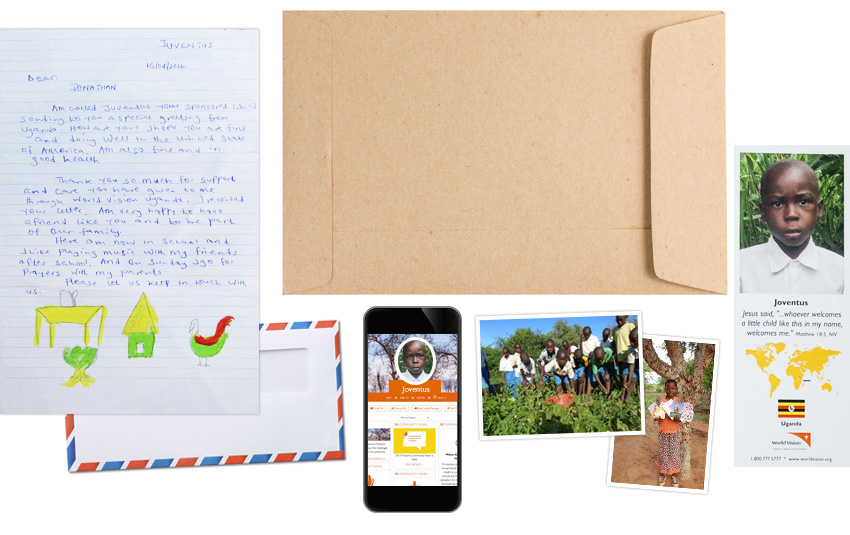 JUVENTUS
15/04/2016
Dear.
JONATHAN
Am called Juventus your sponsored child
sending to you a special greeting from
Uganda. How are you? I hope you are fine
and doing well in the United State
of America, Am also fine and in
good health.
Thank you so much for support
and care you have given to me
through World Vision Uganda. I recieved
your letter. Am very happy to have
a friend like you and to be part
of our family.
Here am now in school and
I like playing music with my friends
after school. And on Sunday I go for
prayers with my parents.
Please let us keep in touch with
us.
Joventus
COMMUNITY NEWS
Joventus
Jesus said, "...whoever welcomes
a little child like this in my name,
welcomes me." Matthew 18:5, NIV
Uganda
World Vision
1 800 777 5777 * www.worldvision.org